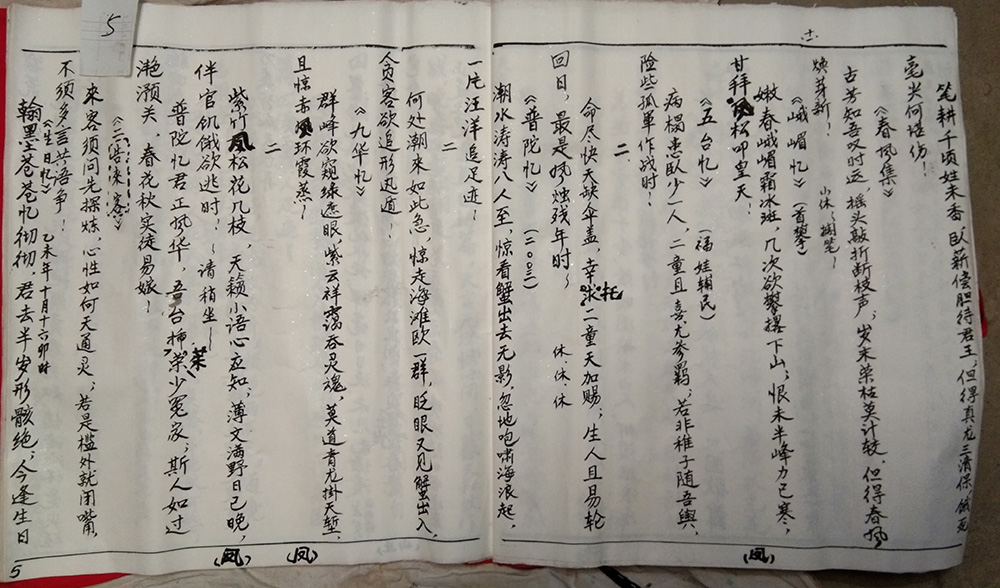 笔耕千顷姓未香臥薪偿胆待君王，但得真龙三清保 饿死
亳尖何堪仿！
《春风集》
古芳知吾叹时运，摇头敲折断枝声；岁末荣枯莫计较，但得春风
焕芽新！ 山休；搁笔！
《峨嵋忆》（首攀）
嫩春峨嵋霜冰斑，几次欲攀摆下山；恨未半峰力已寒，
甘拜凤松叩皇天！
（凤）
《五台忆》（福娃辅民）
病榻患臥少一人，二童且喜尤爹羁；若非稚子随吾舆，
险些孤军作战时！
二
命尽快天缺伞盖，幸求托二童天加赐；生人且易轮
回日，最是风烛残年时～ 休.休.休
《普陀忆》（二〇〇三）
潮水涛涛八人至，惊看蟹出去无影，忽地咆啸海浪起，
一片汪洋追足迹！
十一
二
何处潮来如此急，惊走海滩欧一群，眨眼又见蟹出入，
贪客欲追形迅遁！
《九华忆》
群峰欲窥缘遮眼，紫云祥霭吞灵魂，莫道青龙掛天堑，
且惊吉凤环霞蒸！
（凤）
二
紫竹凤松花几枝，天籁小语心应知，薄文满野日已晚，
（凤）
伴官饥饿欲逃时！～请稍坐～
普陀忆君正风华，五台柿菜少冤家；斯人如过
滟滪关，春花秋实徒易嫁！
《二告来客》
来客须问先探炼，心性如何天通灵；若是槛外就闭嘴，
不须多言共语争！
《生日忆》乙未年十月十六卯时
翰墨苍苍忆彻彻，君去半岁形骸绝，今逢生日
5
5